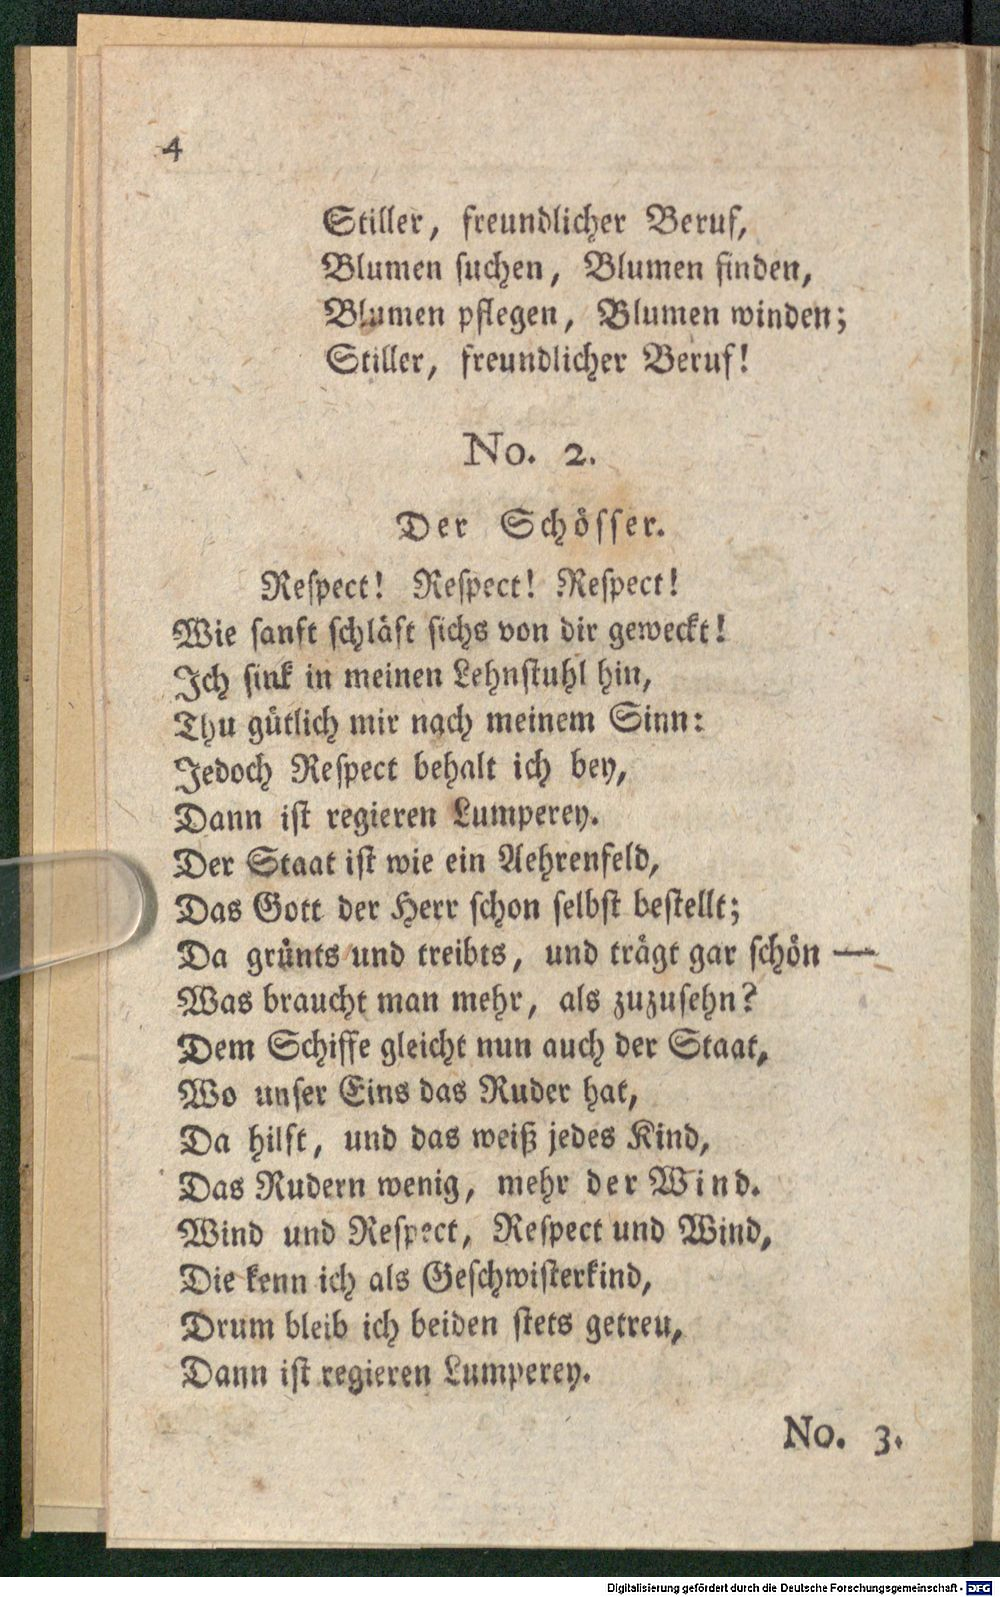 4
Stiller, freundlicher Beruf,
Blumen suchen, Blumen finden,
Blumen pflegen, Blumen winden;
Stiller, freundlicher Beruf!
No. 2.
Der Schösser.
Respect! Respect! Respect!
Wie sanft schläft sichs von dir geweckt!
Ich sink in meinen Lehnstuhl hin,
Thu gütlich mir nach meinem Sinn:
Jedoch Respect behalt ich bey,
Dann ist regieren Lumperey.
Der Staat ist wie ein Aehrenfeld,
Das Gott der Herr schon selbst bestellt;
Da grünts und treibts, und trägt gar schön —
Was braucht man mehr, als zuzusehn?
Dem Schiffe gleicht nun auch der Staat,
Wo unser Eins das Ruder hat,
Da hilft, und das weiß jedes Kind,
Das Rudern wenig, mehr der Wind.
Wind und Respect, Respect und Wind,
Die kenn ich als Geschwisterkind,
Drum bleib ich beiden stets getreu,
Dann ist regieren Lumperey.
No. 3.
Digitalisierung gefördert durch die Deutsche Forschungsgemeinschaft - DFG